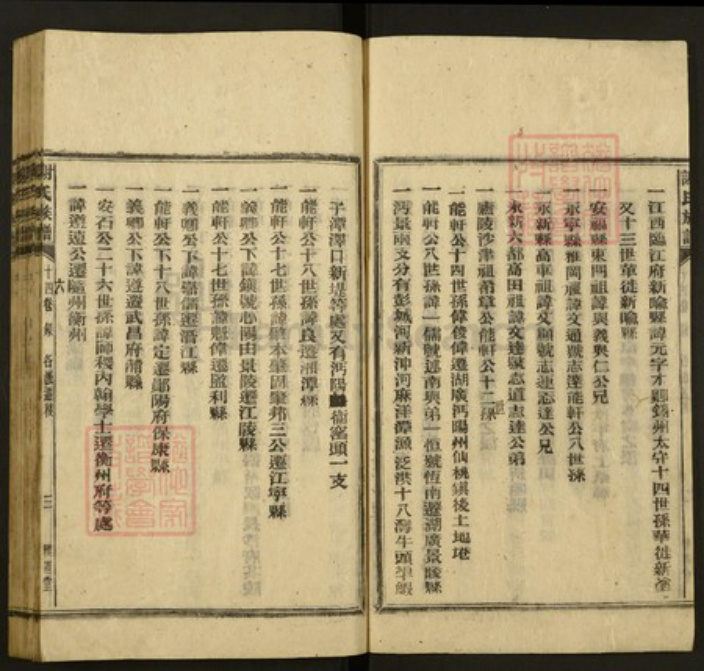 一江西臨江府新喻縣諱元字才題錫州太守十四世孫華徙新塗
又十三世華徙新喻縣
安福縣東門祖諱興義興仁公兄
一永寧縣雅岡祖諱文通號志達能軒公八世孫
一永新縣高車祖諱文顯號志連志達公兄
一永新六都高田祖諱文達號志道志達公弟
一廬陵沙津祖菊章公能軒公十二孫
一能軒公十四世孫偉俊偉遷湖廣沔陽州仙桃鎮後土地塔
一能軒公八世孫諱一儒號述南與弟一恒號恆南遷湖廣景陵縣
一沔景兩支分有彭城河新沖河麻洋潭漁泛洪十八灣牛頭
一平潭澤口新堤等處又有沔陽 衛窩頭一支
一能軒公十八世孫諱良遷湘潭縣
一能軒公十七世孫諱肇本肇固肇邦三公遷江寧縣
一義卿公下諱鎮號心陽由景陵遷江陵縣
一能軒公十七世孫諱魁偉遷監利縣
一義卿公下諱 儒遷潛江縣
一能軒公下十八世孫諱定遷鄖陽府保康縣
一義卿公下諱遵遵遷武昌府蒲縣
一安石公二十六世孫諱師稷內翰學士遷衡州府等處
一諱遵遠公遷 州衡州
謝氏族譜 十四卷 各派遷移 三
謝氏族譜